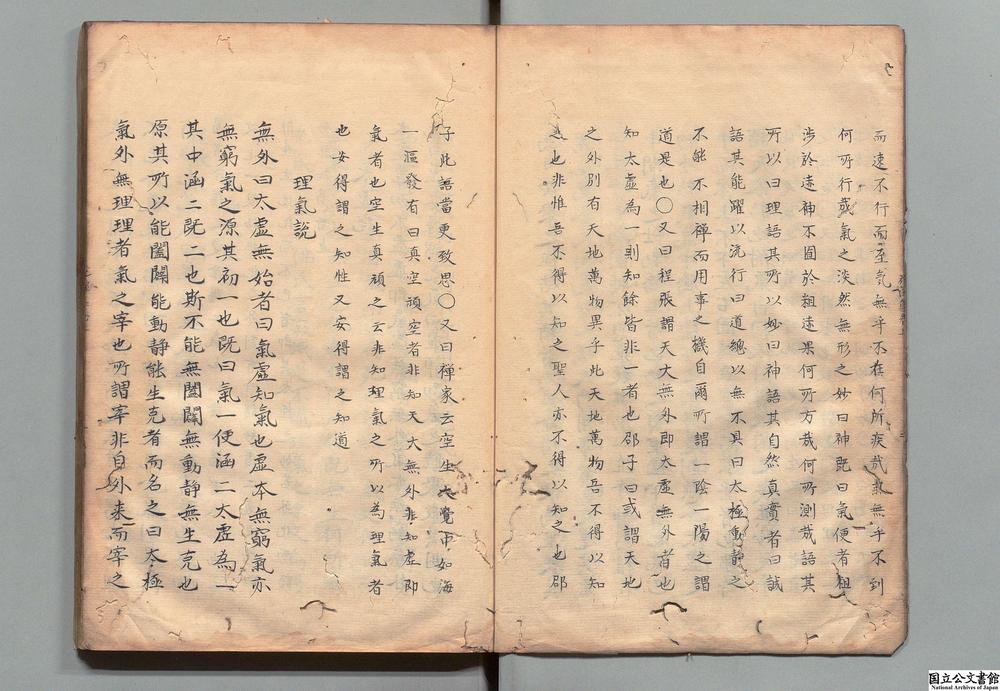 而速不行而至氣無乎不在何所疾哉氣無乎不到
何所行哉氣之淡然無形之妙曰神既曰氣便有粗
涉於迹神不囿於粗迹果何所方哉何所測哉語其
所以曰理語其所以妙曰神語其自然真實者曰誠
語其能躍以流行曰道總以無不具曰太極動靜之
不能不相禪而用事之機自爾所謂一陰一陽之謂
道是也〇又曰程張謂天大無外即太虛無外者也
知太虛為一則知餘皆非一者也邵子曰或謂天地
之外別有天地萬物異乎此天地萬物吾不得以知
之也非惟吾不得以知之聖人亦不得以知之也邵
子此語當更致思〇又曰禪家云空生大覺中如海
一漚發有曰真空頑空者非知天大無外非知虛即
氣者也空生真頑之云非知理氣之所以為理氣者
也安得謂之知性又安得謂之知道
理氣說
無外曰太虛無始者曰氣虛知氣也虛本無窮氣亦
無窮氣之源其初一也既曰氣一便涵二太虛為一
其中涵二既二也斯不能無闔闢無動靜無生克也
原其所以能闔闢能動靜能生克者而名之曰太極
氣外無理理者氣之宰也所謂宰非自外來而宰之
国立公文書館
National Archives of Japan